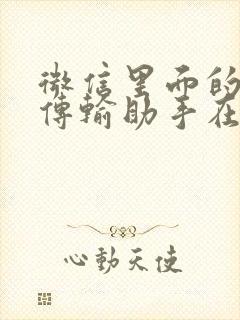 微信里面的
傳輸助手在
心動天使